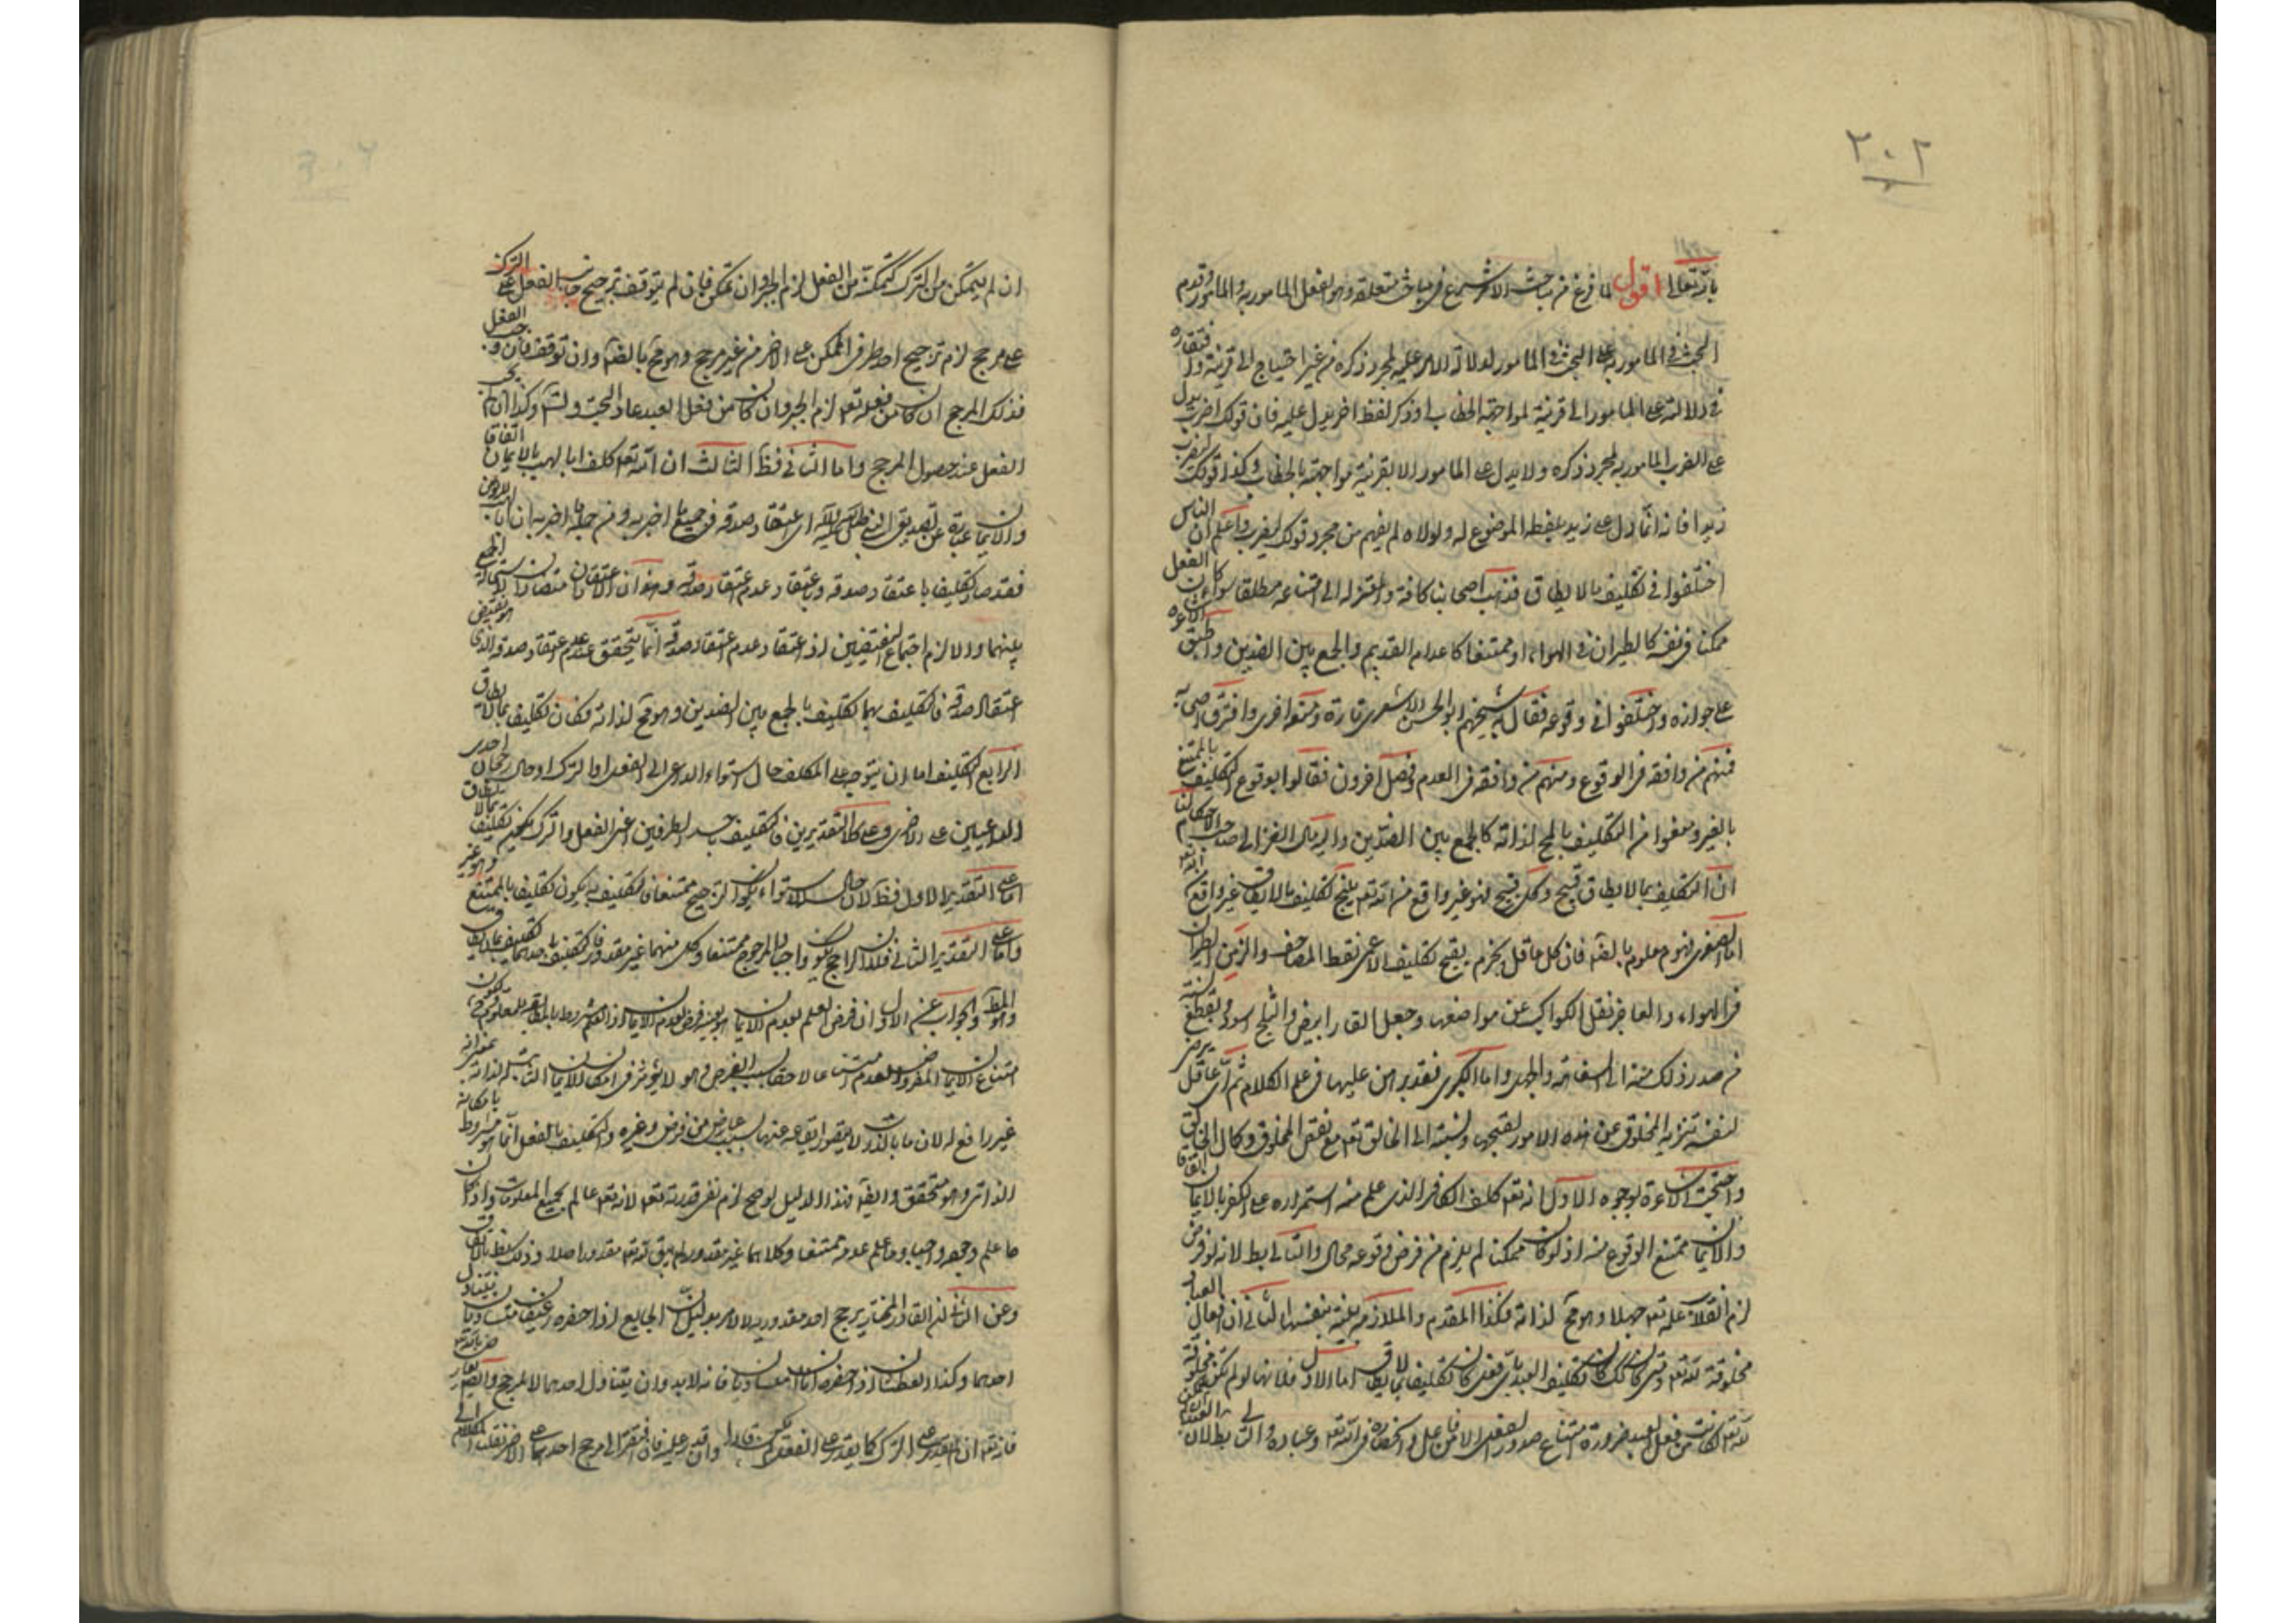 ٣٠٢
بالله تعالى اقول لما فرغ من مباحث الامر شرع في مباحث متعلقه وهو الفعل المامور به والمامور وقدم
البحث في المامور به على البحث في المامور لدلالة الامر عليه بمجرد ذكره من غير احتياج الى قرينة وافتقاره
في دلالته على المامور الى قرينة لمواجهة الخطاب او ذكر لفظ اخر يدل عليه فان قولك اضرب يدل
على الضرب المامور به بمجرد ذكره ولا يدل على المامور الا بقرينة مواجهته بالخطاب وكذا قولك ليضرب
زيد فانه انما دل على زيد بلفظه الموضوع له ولولاه لم يفهم من مجرد قولك ليضرب واعلم ان الناس
اختلفوا في تكليف ما لا يطاق فذهب اصحابنا كافة والمعتزلة الى امتناعه مطلقا سواء كان الفعل
ممكنا في نفسه كالطيران في الهواء او ممتنعا كاعدام القديم والجمع بين الضدين واطبق الاشاعرة
على جوازه واختلفوا في وقوعه فقال به شيخهم ابو الحسن الاشعري تارة ومنعه اخرى وافترق اصحابه
فمنهم من وافقه في الوقوع ومنهم من وافقه في العدم وفصل اخرون فقالوا بوقوع التكليف بالممتنع
بالغير ومنعوا من التكليف بالمحال لذاته كالجمع بين الضدين واليه مال الغزالي صاحب الاحكام لنا
ان التكليف بما لا يطاق قبيح وكل قبيح فهو غير واقع من الله تعالى ينتج تكليف ما لا يطاق غير واقع منه تعالى
اما الصغرى فهو معلوم بالضرورة فان كل عاقل يجزم بقبح تكليف الاعمى نقط المصاحف والزمن الطيران
في الهواء والعاجز نقل الكواكب عن مواضعها وجعل القار ابيض والثلج اسود ويقطع بنسبة
من صدر ذلك منه الى السفاهة والجهل واما الكبرى فقد برهن عليها في علم الكلام ثم اي عاقل يرضى
لنفسه تنزيه المخلوق عن هذه الامور لقبحها ونسبته الى الخالق تعالى مع نقص المخلوق وكمال الخالق
واحتجت الاشاعرة بوجوه الاول انه تعالى كلف الكافر الذي علم منه استمراره على الكفر بالايمان اتفاقا
والايمان ممتنع الوقوع منه اذ لو كان ممكنا لم يلزم من فرض وقوعه محال والتالي بط لانه لو فرض
لزم انقلاب علمه تعالى جهلا وهو مح لذاته فكذا المقدم والملازمة بينة بنفسها الثاني ان افعال العباد
مخلوقة لله تعالى ومتى كان كذلك كان تكليف العبد بالفعل تكليفا بما لا يطاق اما الاول فلانها لو لم تكن مخلوقة
لله تعالى لكانت من فعل العبد ضرورة امتناع صدور الفعل الا من فاعل وانحصاره في الله تعالى وعباده والتالي بط لان العبد
ان لم يتمكن من الترك كتمكنه من الفعل لزم الجبر وان تمكن فان لم يتوقف ترجيح جانب الفعل على الترك
على مرجح لزم ترجيح احد طرفي الممكن على الاخر من غير مرجح وهو مح بالضرورة وان توقف فان وجب الفعل
فذلك المرجح ان كان من فعله تعالى لزم الجبر وان كان من فعل العبد عاد البحث وتس وكذا ان لم يجب
الفعل عند حصول المرجح واما الثاني فظ الثالث ان الله تعالى كلف ابا لهب بالايمان اتفاقا
والايمان عبارة عن تصديق النبي صلى الله عليه اي اعتقاد صدقه في جميع ما اخبر به ومن جملة ما اخبر به ان ابا لهب لا يؤمن
فقد صار تكليفا باعتقاد صدقه وباعتقاد عدم اعتقاد صدقه وهذان الاعتقادان متضادان لاستحالة الجمع
بينهما والا لزم اجتماع النقيضين اذ اعتقاد عدم اعتقاد صدقه انما يتحقق عند عدم اعتقاد صدقه الذي هو نقيض
اعتقاد صدقه فالتكليف بهما تكليف بالجمع بين الضدين وهو مح لذاته فكان تكليفا بما لا يطاق
الرابع التكليف اما ان يتوجه على المكلف حال استواء الداعي الى الفعل او الترك او حال رجحان احدى
الداعيتين على الاخرى وعلى كلا التقديرين فالتكليف باحد الطرفين اعني الفعل والترك تكليف بما لا يطاق
اما على التقدير الاول فظ لان حال الاستواء يكون الترجيح ممتنعا فالتكليف به يكون تكليفا بالممتنع وهو غير
واما على التقدير الثاني فلان الراجح يكون واجبا والمرجوح ممتنعا وكل منهما غير مقدور فالتكليف باحدهما تكليف بما لا يطاق
وهو المط والجواب عن الاول ان فرض العلم بعدم الايمان هو بعينه فرض لعدم الايمان اذ العلم مشروط بالمطابقة للمعلوم فيكون
امتناع الايمان المفروض العدم امتناعا لاحقا بسبب الفرض وهو لا يؤثر في امكان الايمان الثابت له لذاته بمعنى انه
غير رافع له لان ما بالذات لا يمتنع ارتفاعه عنها بسبب عارض من فرض وغيره والتكليف بالفعل انما هو مشروط بامكانه
الذاتي وهو متحقق وايضا فهذا الدليل لو صح لزم نفي قدرته تعالى لانه تعالى عالم بجميع المعلومات واذا كان
ما علم وجوده واجبا وما علم عدمه ممتنعا وكلاهما غير مقدور لم يبق له تعالى مقدور اصلا وذلك بط بالاتفاق
وعن الثاني ان القادر المختار يرجح احد مقدوريه لا لامر بدليل ان الجايع اذا حضره رغيفان متساويان يتناول
احدهما وكذا العطشان اذا حضره اناان متساويان فانه لا بد وان يتناول احدهما لا لمرجح وايضا يعارض بالله تعالى
فانه تعالى ان لم يقدر على الترك كما يقدر على الفعل لم يكن قادرا وان قدر عليه فان افتقر الى مرجح احدهما على الاخر نقلنا الكلام اليه